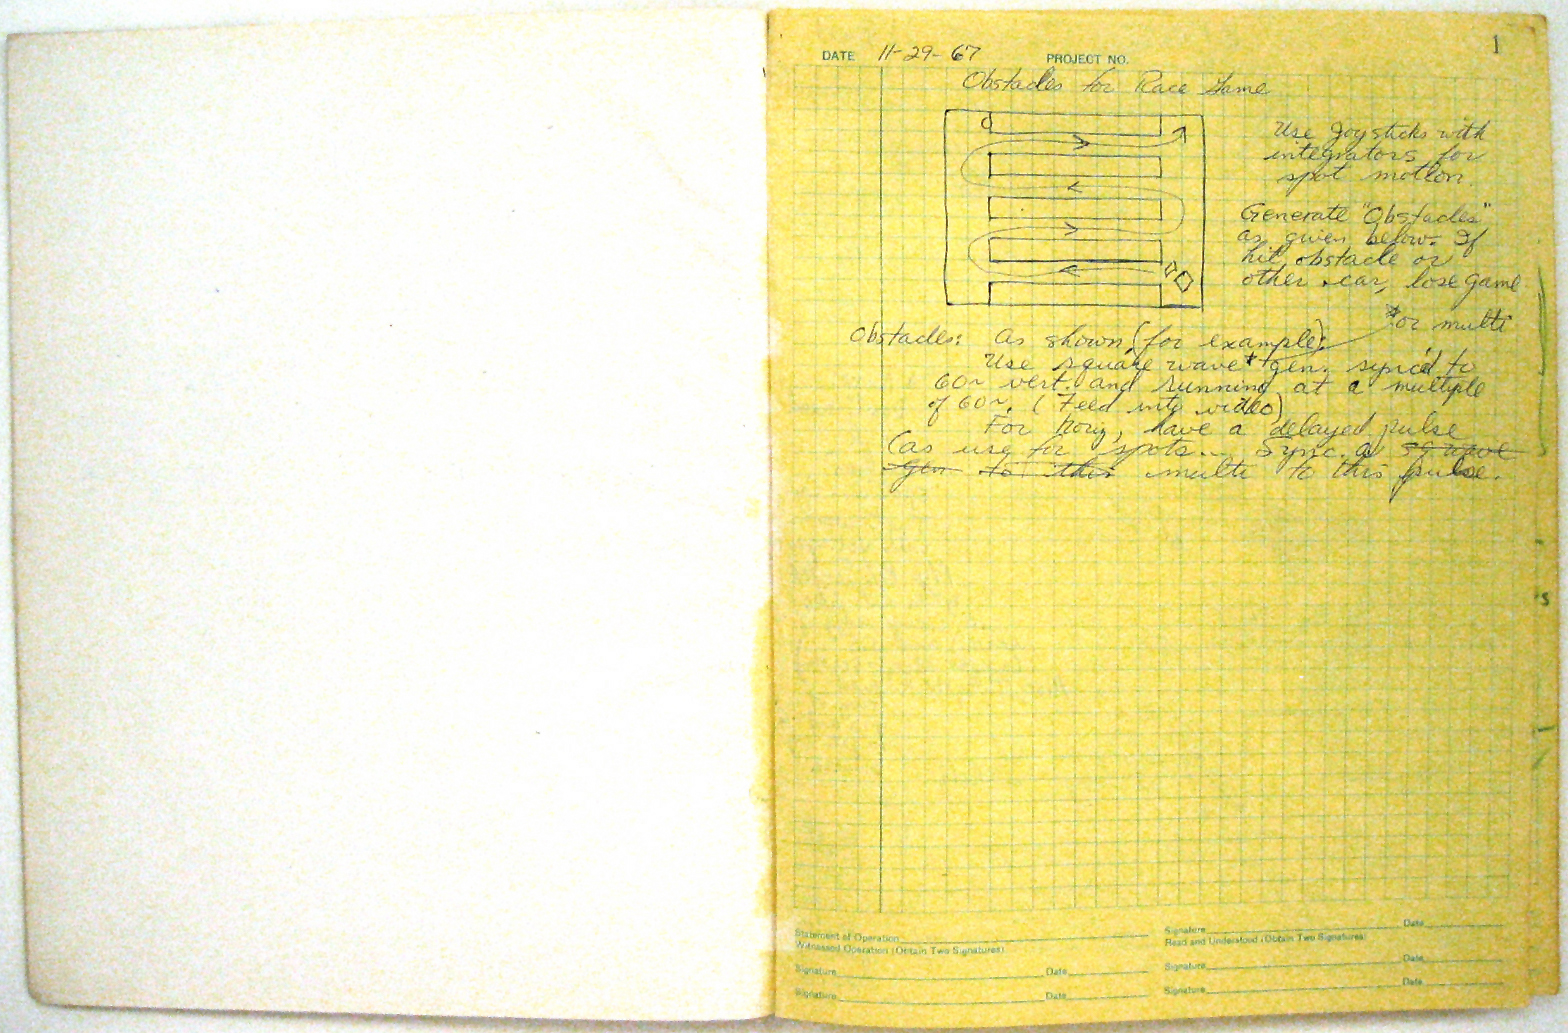 1
DATE 11-29-67 PROJECT NO.
Obstacles for Race Game
Use Joysticks with
integrators for
spot motion.
Generate "Obstacles"
as given below. If
hit obstacle or
other car, lose game
*or multi
Obstacles: as shown (for example):
Use square wave* gen. sync'd to
60~ vert. and running at a multiple
of 60~. (Feed into video)
For horiz, have a delayed pulse
(as use for spots... Sync. a sq wave
gen to this multi to this pulse.
Statement of Operation
Witnessed Operation (Obtain Two Signatures)
Signature Date
Signature Date
Signature Date
Read and Understood (Obtain Two Signatures)
Signature Date
Signature Date